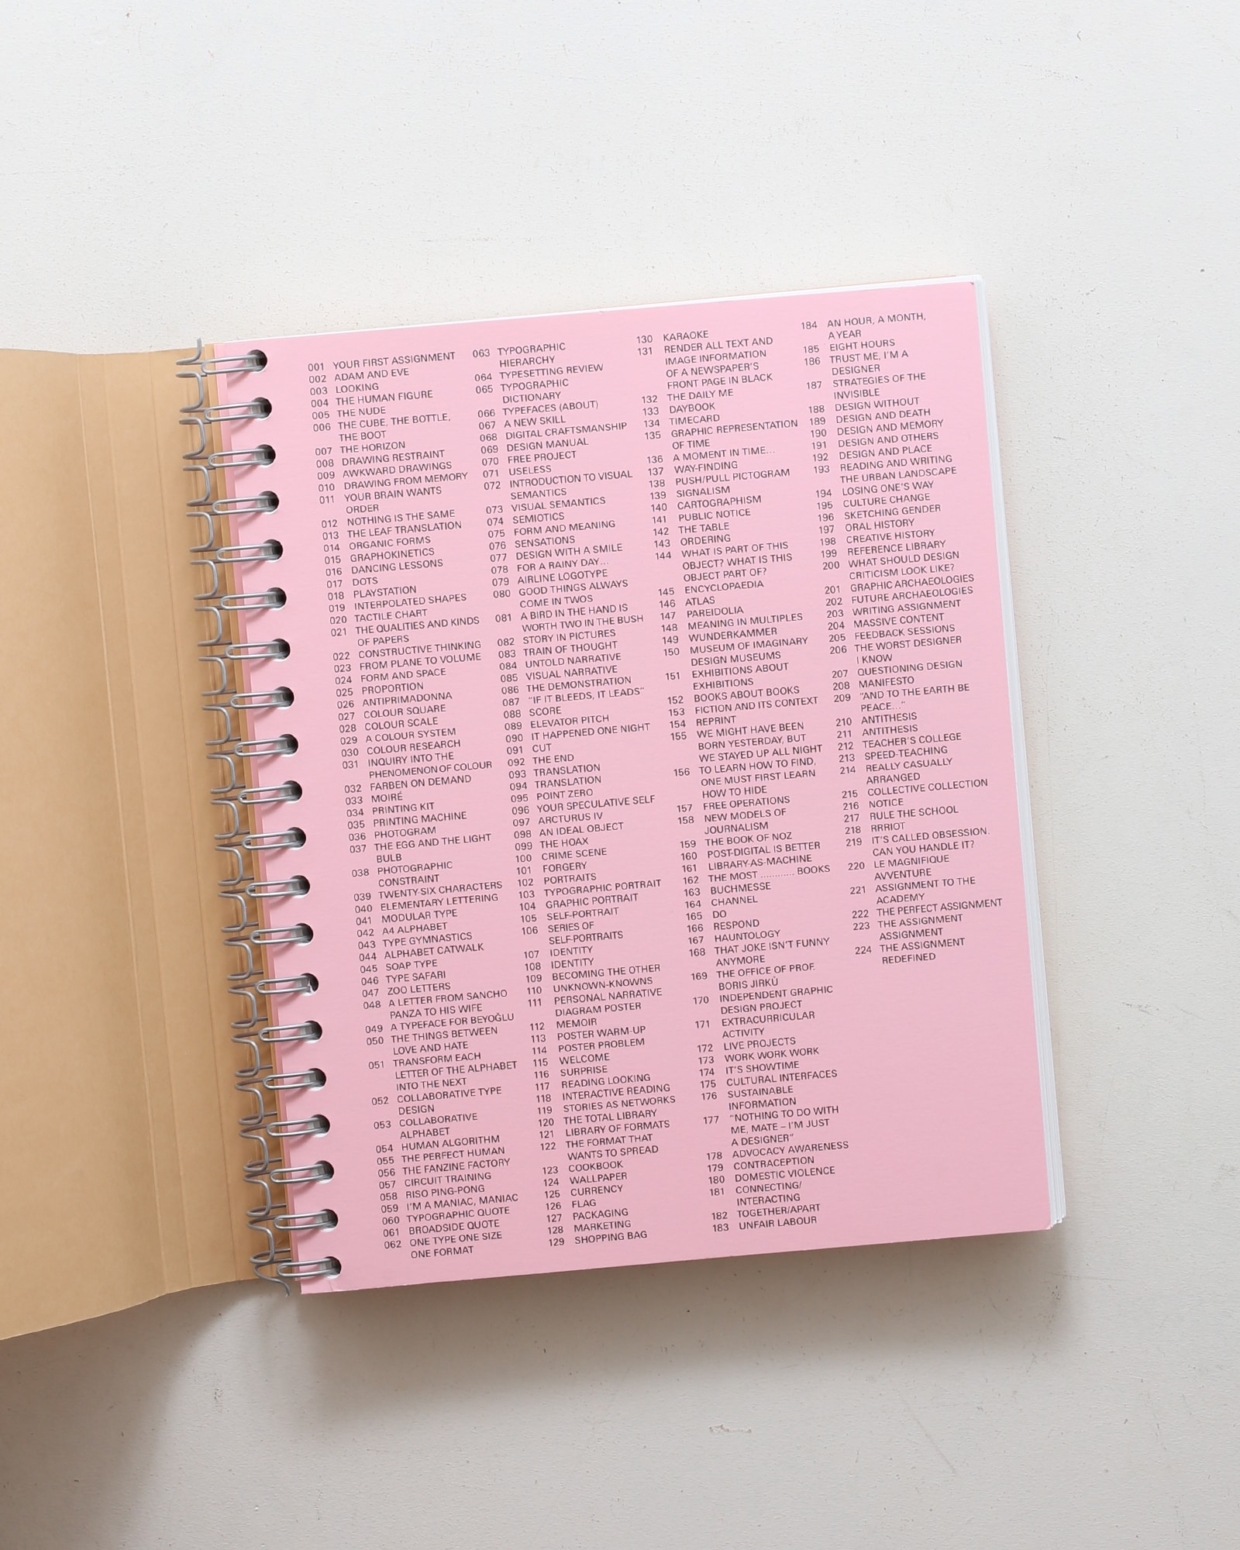 001 YOUR FIRST ASSIGNMENT
002 ADAM AND EVE
003 LOOKING
004 THE HUMAN FIGURE
005 THE NUDE
006 THE CUBE, THE BOTTLE,
THE BOOT
007 THE HORIZON
008 DRAWING RESTRAINT
009 AWKWARD DRAWINGS
010 DRAWING FROM MEMORY
011 YOUR BRAIN WANTS
ORDER
012 NOTHING IS THE SAME
013 THE LEAF TRANSLATION
014 ORGANIC FORMS
015 GRAPHOKINETICS
016 DANCING LESSONS
017 DOTS
018 PLAYSTATION
019 INTERPOLATED SHAPES
020 TACTILE CHART
021 THE QUALITIES AND KINDS
OF PAPERS
022 CONSTRUCTIVE THINKING
023 FROM PLANE TO VOLUME
024 FORM AND SPACE
025 PROPORTION
026 ANTIPRIMADONNA
027 COLOUR SQUARE
028 COLOUR SCALE
029 A COLOUR SYSTEM
030 COLOUR RESEARCH
031 INQUIRY INTO THE
PHENOMENON OF COLOUR
032 FARBEN ON DEMAND
033 MOIRÉ
034 PRINTING KIT
035 PRINTING MACHINE
036 PHOTOGRAM
037 THE EGG AND THE LIGHT
BULB
038 PHOTOGRAPHIC
CONSTRAINT
039 TWENTY-SIX CHARACTERS
040 ELEMENTARY LETTERING
041 MODULAR TYPE
042 A4 ALPHABET
043 TYPE GYMNASTICS
044 ALPHABET CATWALK
045 SOAP TYPE
046 TYPE SAFARI
047 ZOO LETTERS
048 A LETTER FROM SANCHO
PANZA TO HIS WIFE
049 A TYPEFACE FOR BEYOĞLU
050 THE THINGS BETWEEN
LOVE AND HATE
051 TRANSFORM EACH
LETTER OF THE ALPHABET
INTO THE NEXT
052 COLLABORATIVE TYPE
DESIGN
053 COLLABORATIVE
ALPHABET
054 HUMAN ALGORITHM
055 THE PERFECT HUMAN
056 THE FANZINE FACTORY
057 CIRCUIT TRAINING
058 RISO PING-PONG
059 I'M A MANIAC, MANIAC
060 TYPOGRAPHIC QUOTE
061 BROADSIDE QUOTE
062 ONE TYPE ONE SIZE
ONE FORMAT
063 TYPOGRAPHIC
HIERARCHY
064 TYPESETTING REVIEW
065 TYPOGRAPHIC
DICTIONARY
066 TYPEFACES (ABOUT)
067 A NEW SKILL
068 DIGITAL CRAFTSMANSHIP
069 DESIGN MANUAL
070 FREE PROJECT
071 USELESS
072 INTRODUCTION TO VISUAL
SEMANTICS
073 VISUAL SEMANTICS
074 SEMIOTICS
075 FORM AND MEANING
076 SENSATIONS
077 DESIGN WITH A SMILE
078 FOR A RAINY DAY...
079 AIRLINE LOGOTYPE
080 GOOD THINGS ALWAYS
COME IN TWOS
081 A BIRD IN THE HAND IS
WORTH TWO IN THE BUSH
082 STORY IN PICTURES
083 TRAIN OF THOUGHT
084 UNTOLD NARRATIVE
085 VISUAL NARRATIVE
086 THE DEMONSTRATION
087 "IF IT BLEEDS, IT LEADS"
088 SCORE
089 ELEVATOR PITCH
090 IT HAPPENED ONE NIGHT
091 CUT
092 THE END
093 TRANSLATION
094 TRANSLATION
095 POINT ZERO
096 YOUR SPECULATIVE SELF
097 ARCTURUS IV
098 AN IDEAL OBJECT
099 THE HOAX
100 CRIME SCENE
101 FORGERY
102 PORTRAITS
103 TYPOGRAPHIC PORTRAIT
104 GRAPHIC PORTRAIT
105 SELF-PORTRAIT
106 SERIES OF
SELF-PORTRAITS
107 IDENTITY
108 IDENTITY
109 BECOMING THE OTHER
110 UNKNOWN-KNOWNS
111 PERSONAL NARRATIVE
DIAGRAM POSTER
112 MEMOIR
113 POSTER WARM-UP
114 POSTER PROBLEM
115 WELCOME
116 SURPRISE
117 READING LOOKING
118 INTERACTIVE READING
119 STORIES AS NETWORKS
120 THE TOTAL LIBRARY
121 LIBRARY OF FORMATS
122 THE FORMAT THAT
WANTS TO SPREAD
123 COOKBOOK
124 WALLPAPER
125 CURRENCY
126 FLAG
127 PACKAGING
128 MARKETING
129 SHOPPING BAG
130 KARAOKE
131 RENDER ALL TEXT AND
IMAGE INFORMATION
OF A NEWSPAPER'S
FRONT PAGE IN BLACK
132 THE DAILY ME
133 DAYBOOK
134 TIMECARD
135 GRAPHIC REPRESENTATION
OF TIME
136 A MOMENT IN TIME...
137 WAY-FINDING
138 PUSH/PULL PICTOGRAM
139 SIGNALISM
140 CARTOGRAPHISM
141 PUBLIC NOTICE
142 THE TABLE
143 ORDERING
144 WHAT IS PART OF THIS
OBJECT? WHAT IS THIS
OBJECT PART OF?
145 ENCYCLOPAEDIA
146 ATLAS
147 PAREIDOLIA
148 MEANING IN MULTIPLES
149 WUNDERKAMMER
150 MUSEUM OF IMAGINARY
DESIGN MUSEUMS
151 EXHIBITIONS ABOUT
EXHIBITIONS
152 BOOKS ABOUT BOOKS
153 FICTION AND ITS CONTEXT
154 REPRINT
155 WE MIGHT HAVE BEEN
BORN YESTERDAY, BUT
WE STAYED UP ALL NIGHT
156 TO LEARN HOW TO FIND,
ONE MUST FIRST LEARN
HOW TO HIDE
157 FREE OPERATIONS
158 NEW MODELS OF
JOURNALISM
159 THE BOOK OF NOZ
160 POST-DIGITAL IS BETTER
161 LIBRARY-AS-MACHINE
162 THE MOST ............ BOOKS
163 BUCHMESSE
164 CHANNEL
165 DO
166 RESPOND
167 HAUNTOLOGY
168 THAT JOKE ISN'T FUNNY
ANYMORE
169 THE OFFICE OF PROF.
BORIS JIRKŮ
170 INDEPENDENT GRAPHIC
DESIGN PROJECT
171 EXTRACURRICULAR
ACTIVITY
172 LIVE PROJECTS
173 WORK WORK WORK
174 IT'S SHOWTIME
175 CULTURAL INTERFACES
176 SUSTAINABLE
INFORMATION
177 "NOTHING TO DO WITH
ME, MATE – I'M JUST
A DESIGNER"
178 ADVOCACY AWARENESS
179 CONTRACEPTION
180 DOMESTIC VIOLENCE
181 CONNECTING/
INTERACTING
182 TOGETHER/APART
183 UNFAIR LABOUR
184 AN HOUR, A MONTH,
A YEAR
185 EIGHT HOURS
186 TRUST ME, I'M A
DESIGNER
187 STRATEGIES OF THE
INVISIBLE
188 DESIGN WITHOUT
189 DESIGN AND DEATH
190 DESIGN AND MEMORY
191 DESIGN AND OTHERS
192 DESIGN AND PLACE
193 READING AND WRITING
THE URBAN LANDSCAPE
194 LOSING ONE'S WAY
195 CULTURE CHANGE
196 SKETCHING GENDER
197 ORAL HISTORY
198 CREATIVE HISTORY
199 REFERENCE LIBRARY
200 WHAT SHOULD DESIGN
CRITICISM LOOK LIKE?
201 GRAPHIC ARCHAEOLOGIES
202 FUTURE ARCHAEOLOGIES
203 WRITING ASSIGNMENT
204 MASSIVE CONTENT
205 FEEDBACK SESSIONS
206 THE WORST DESIGNER
I KNOW
207 QUESTIONING DESIGN
208 MANIFESTO
209 "AND TO THE EARTH BE
PEACE..."
210 ANTITHESIS
211 ANTITHESIS
212 TEACHER'S COLLEGE
213 SPEED-TEACHING
214 REALLY CASUALLY
ARRANGED
215 COLLECTIVE COLLECTION
216 NOTICE
217 RULE THE SCHOOL
218 RRRIOT
219 IT'S CALLED OBSESSION.
CAN YOU HANDLE IT?
220 LE MAGNIFIQUE
AVVENTURE
221 ASSIGNMENT TO THE
ACADEMY
222 THE PERFECT ASSIGNMENT
223 THE ASSIGNMENT
ASSIGNMENT
224 THE ASSIGNMENT
REDEFINED